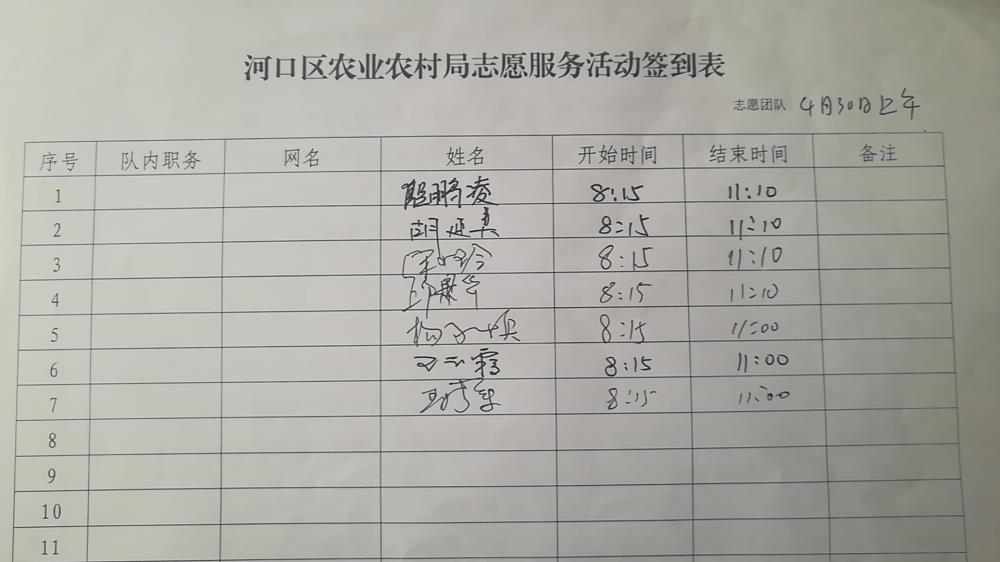 河口区农业农村局志愿服务活动签到表
志愿团队 4月30日上午
序号 队内职务 网名 姓名 开始时间 结束时间 备注
1 鹏凌 8:15 11:10
2 胡延真 8:15 11:10
3 8:15 11:10
4 8:15 11:10
5 杨 8:15 11:00
6 霞 8:15 11:00
7 王 8:15 11:00
8
9
10
11